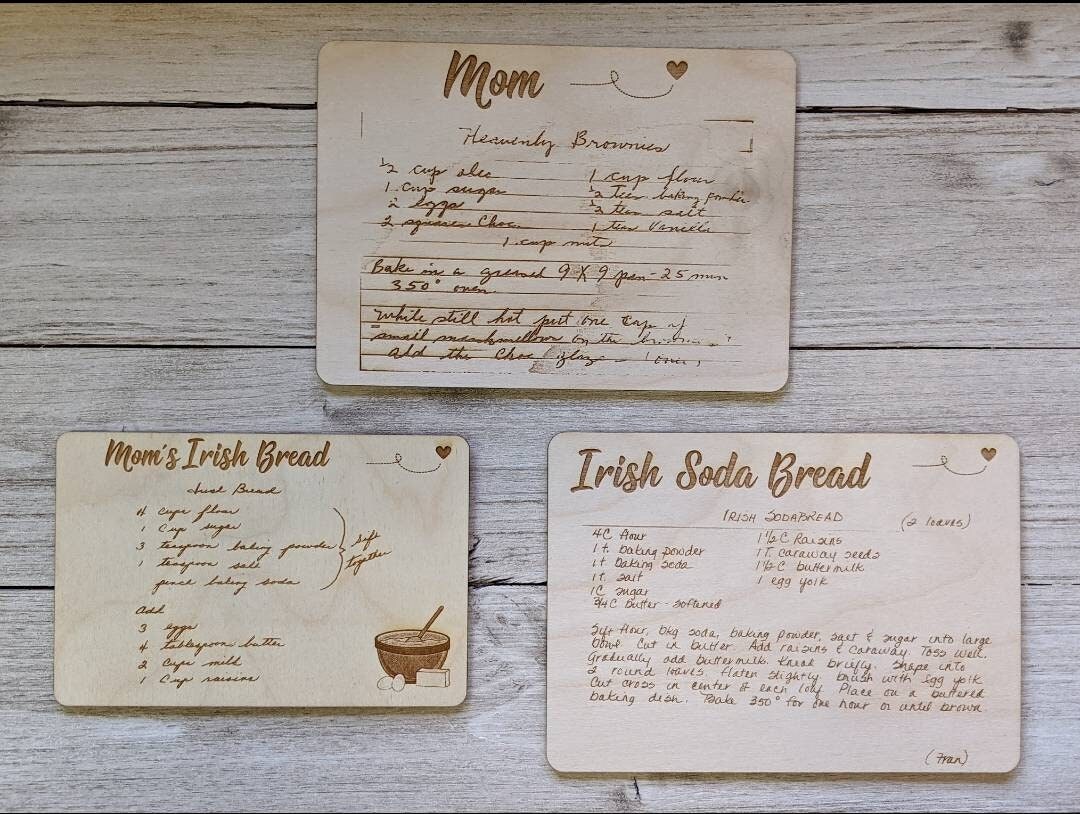 Mom
Heavenly Brownies
1/2 cup oleo
1 cup sugar
2 eggs
2 squares Choc.
1 cup flour
1/2 teas. baking powder
1/2 teas salt
1 teas Vanilla
1 cup nuts
Bake in a greased 9 X 9 pan - 25 min
350° oven.
While still hot put one cup of
small marshmellow on the brownies
add the Choc glaze
Mom's Irish Bread
Irish Bread
4 cups flour
1 Cup sugar
3 teaspoon baking powder
1 teaspoon salt
pinch baking soda
Sift
together
add
3 eggs
4 tablespoon butter
2 Cups milk
1 Cup raisins
Irish Soda Bread
IRISH SODABREAD (2 loaves)
4C flour
1 t. baking powder
1 t baking soda
1 t. salt
1C sugar
3/4 C butter - softened
1 1/2 C Raisins
1 T. caraway seeds
1 1/2 C buttermilk
1 egg yolk
Sift flour, bkg soda, baking powder, salt & sugar into large
bowl. Cut in butter. Add raisins & caraway. Toss well.
Gradually add buttermilk. Knead briefly. Shape into
2 round loaves. flaten slightly. brush with egg yolk
Cut cross in center of each loaf. Place on a buttered
baking dish. Bake 350° for one hour or until brown.
(Fran)